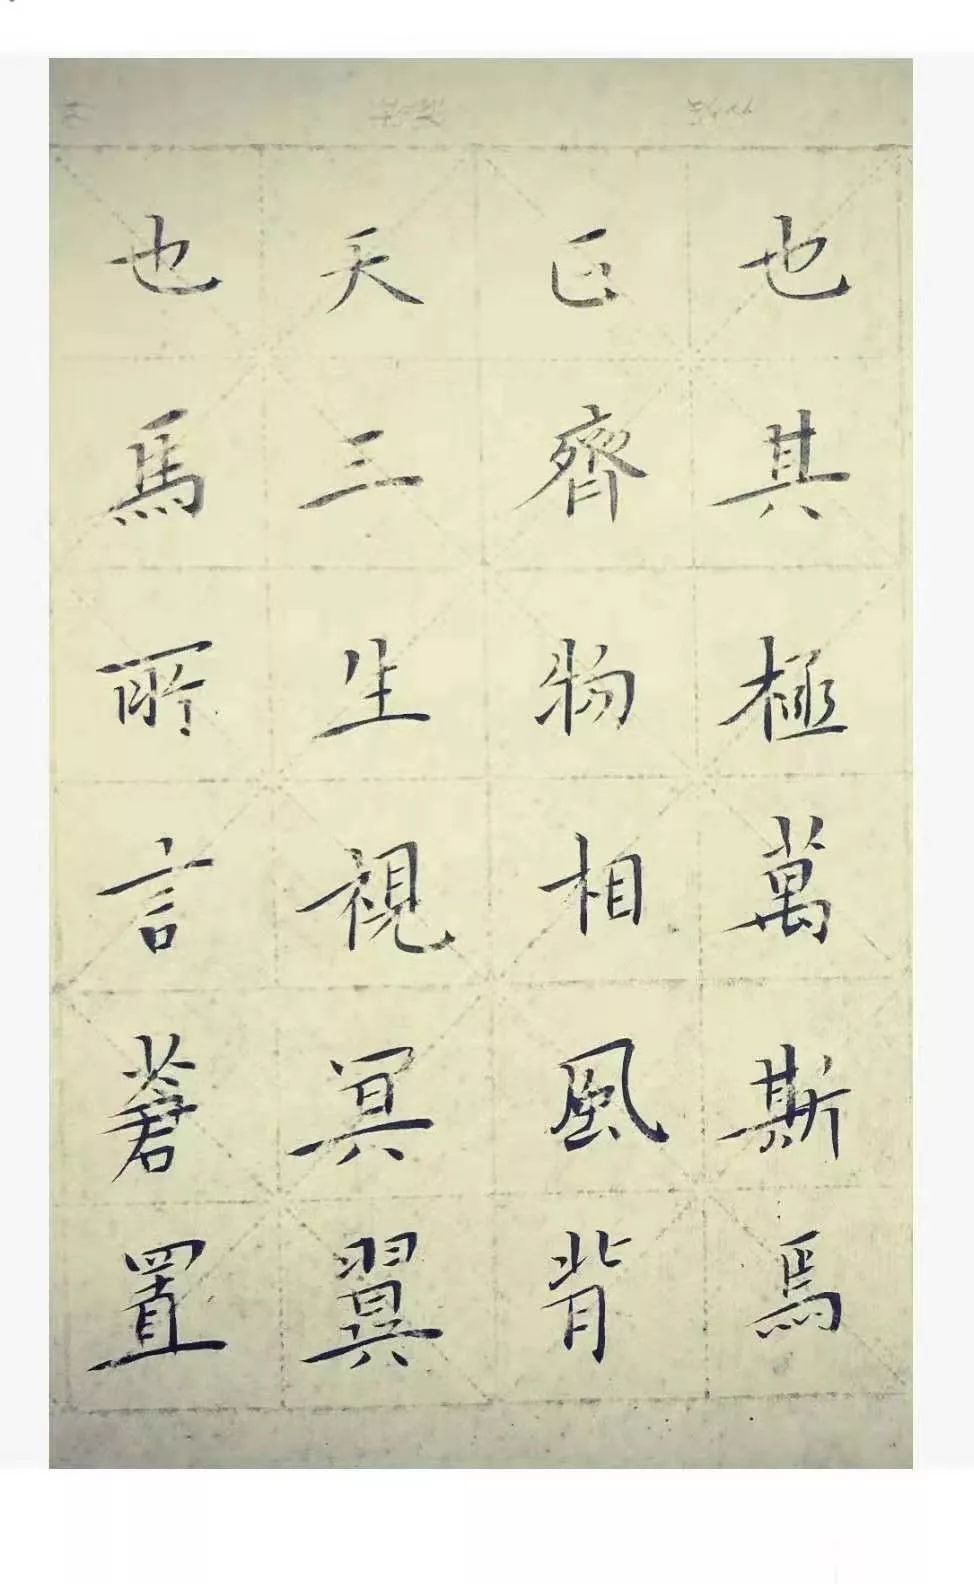 也其極萬斯焉
正齊物相風背
天三生視冥翼
也馬所言蒼置